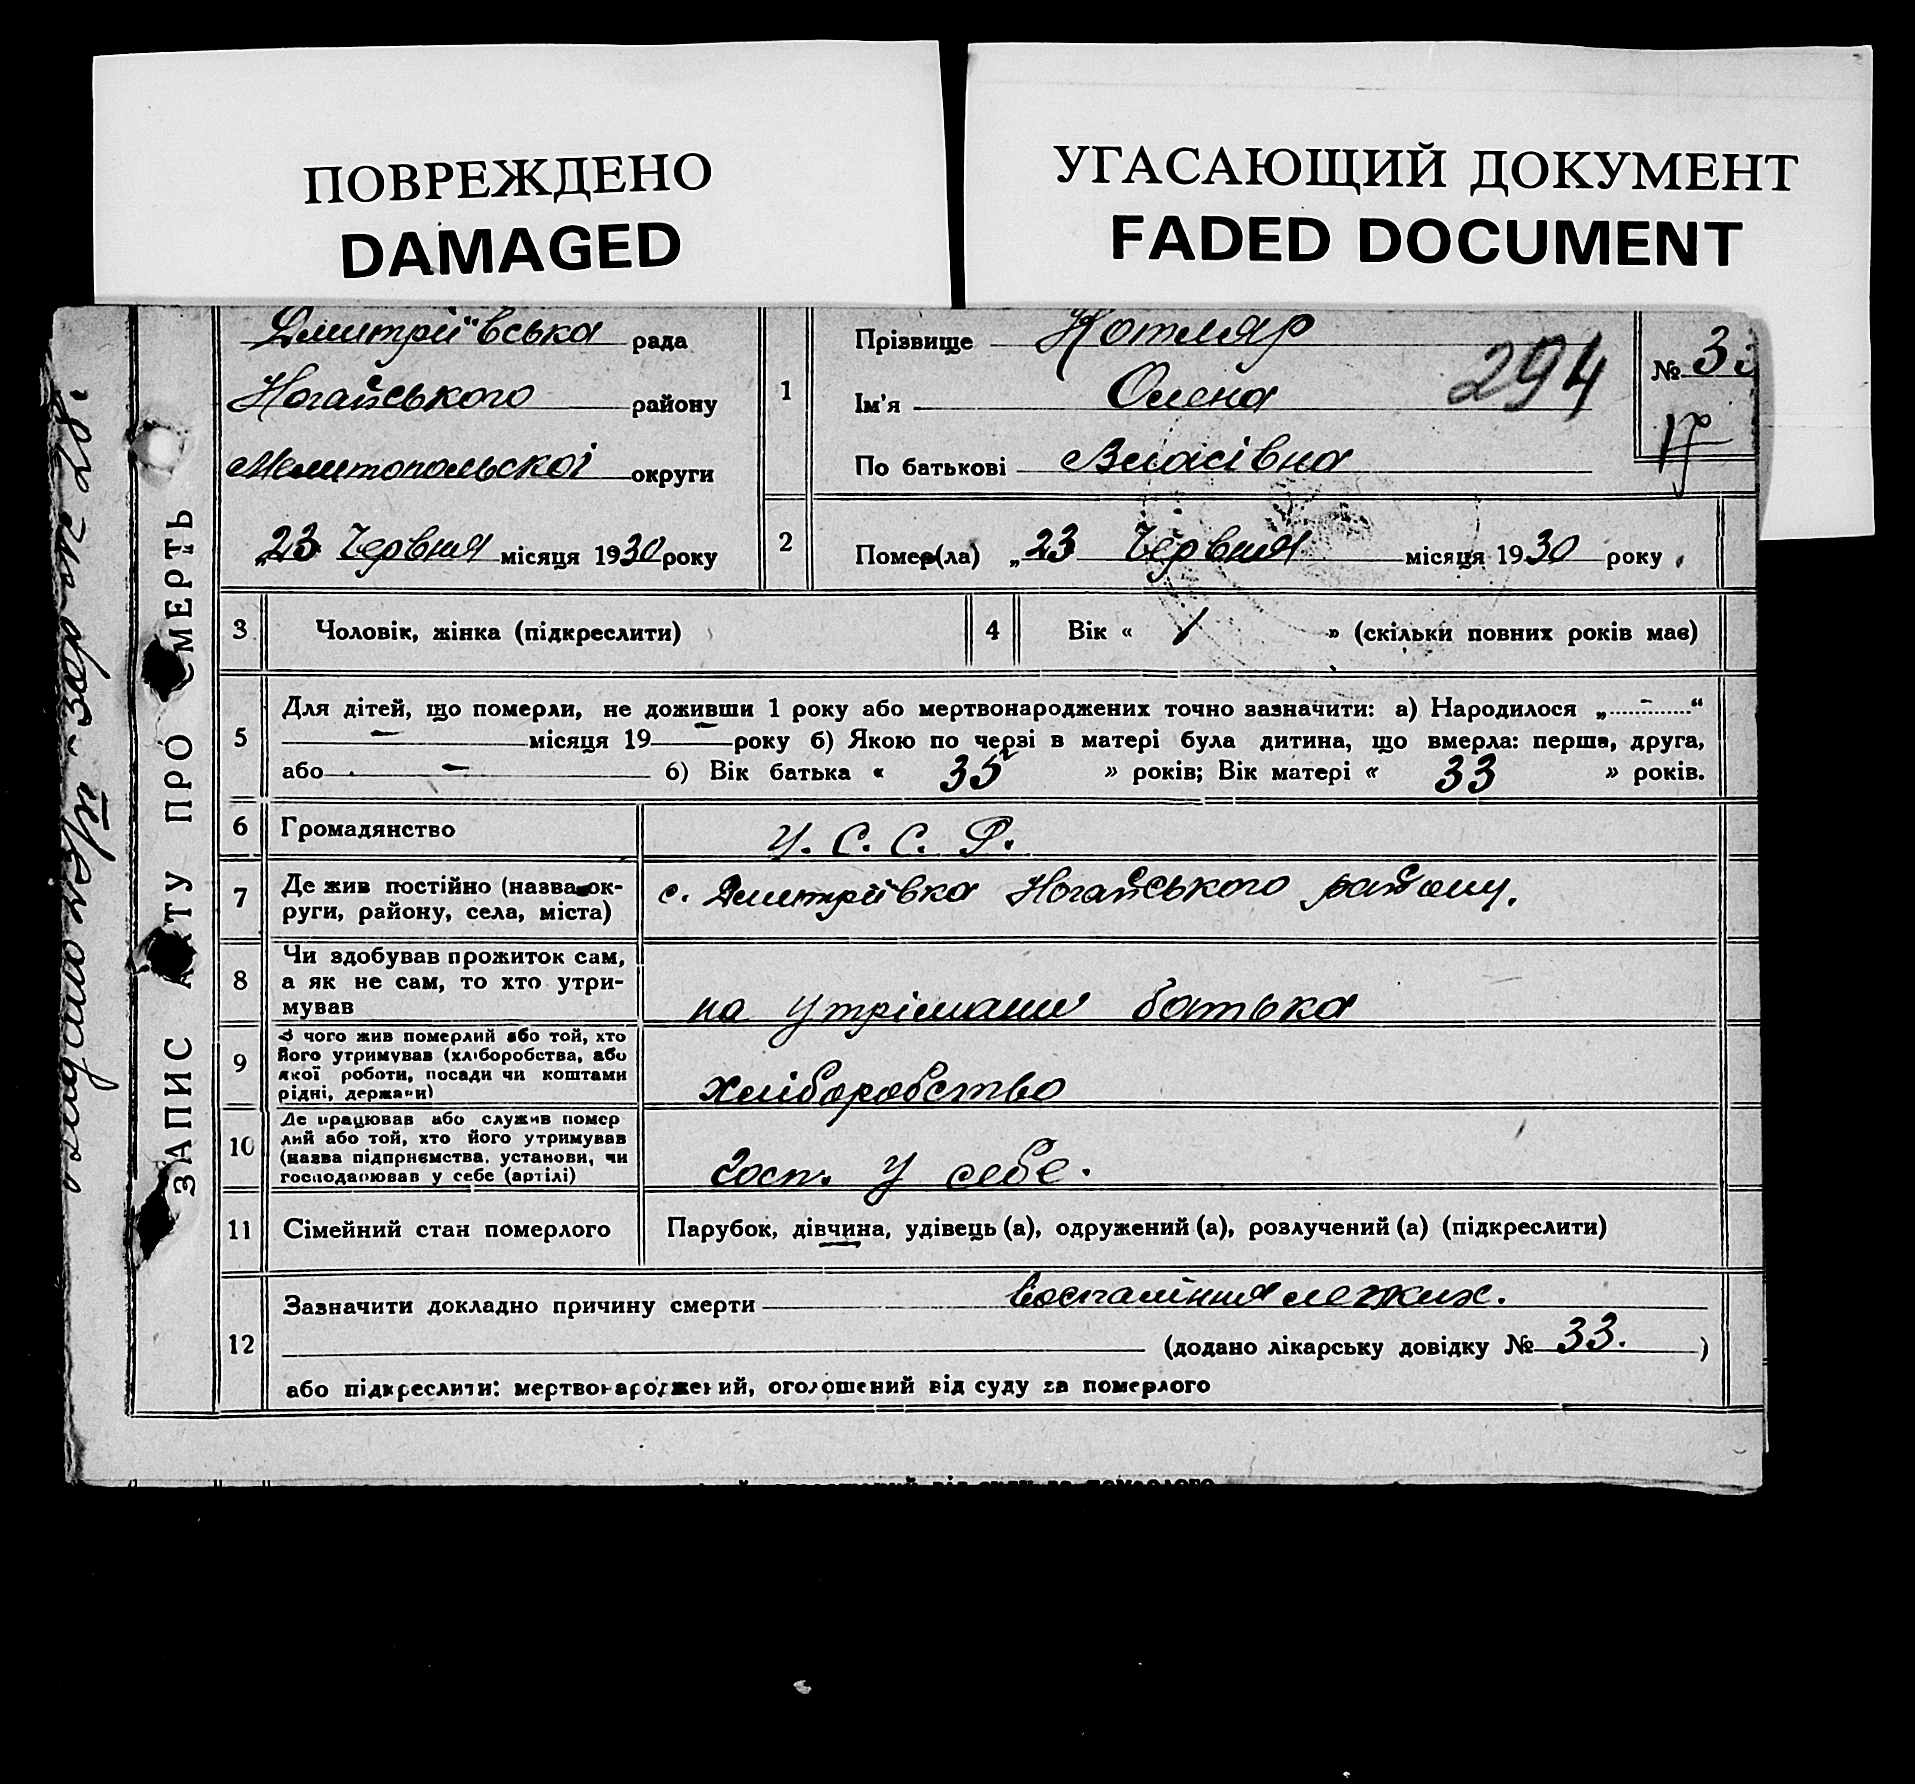 ПОВРЕЖДЕНО
DAMAGED
УГАСАЮЩИЙ ДОКУМЕНТ
FADED DOCUMENT
ЗАПИС АКТУ ПРО СМЕРТЬ
Дмитріївська рада
Ногайського району
Мелитопольскої округи
„23 Червня місяця 1930 року
1
Прізвище Котляр
Ім'я Олена
По батькові Власівна
294
№ 33
17
2
Помер(ла) „23 Червня місяця 1930 року
3 Чоловік, жінка (підкреслити)
4 Вік « 1 » (скільки повних років має)
5 Для дітей, що померли, не доживши 1 року або мертвонароджених точно зазначити: а) Народилося „ - “
- місяця 19 - року б) Якою по черзі в матері була дитина, що вмерла: перша, друга,
або - б) Вік батька « 35 » років; Вік матері « 33 » років.
6 Громадянство У. С. С. Р.
7 Де жив постійно (назва ок-
руги, району, села, міста)
с. Дмитріївка Ногайського району.
8 Чи здобував прожиток сам,
а як не сам, то хто утри-
мував
на утріманні батька
9 З чого жив померлий або той, хто
його утримував (хліборобства, або
якої роботи, посади чи коштами
рідні, держави)
хліборобство
10 Де працював або служив помер
лий або той, хто його утримував
(назва підприємства, установи, чи
господарював у себе (артілі)
госп. у себе.
11 Сімейний стан померлого Парубок, дівчина, удівець (а), одружений (а), розлучений (а) (підкреслити)
12 Зазначити докладно причину смерти воспаління легких.
(додано лікарську довідку № 33. )
або підкреслити: мертвонароджений, оголошений від суду за померлого